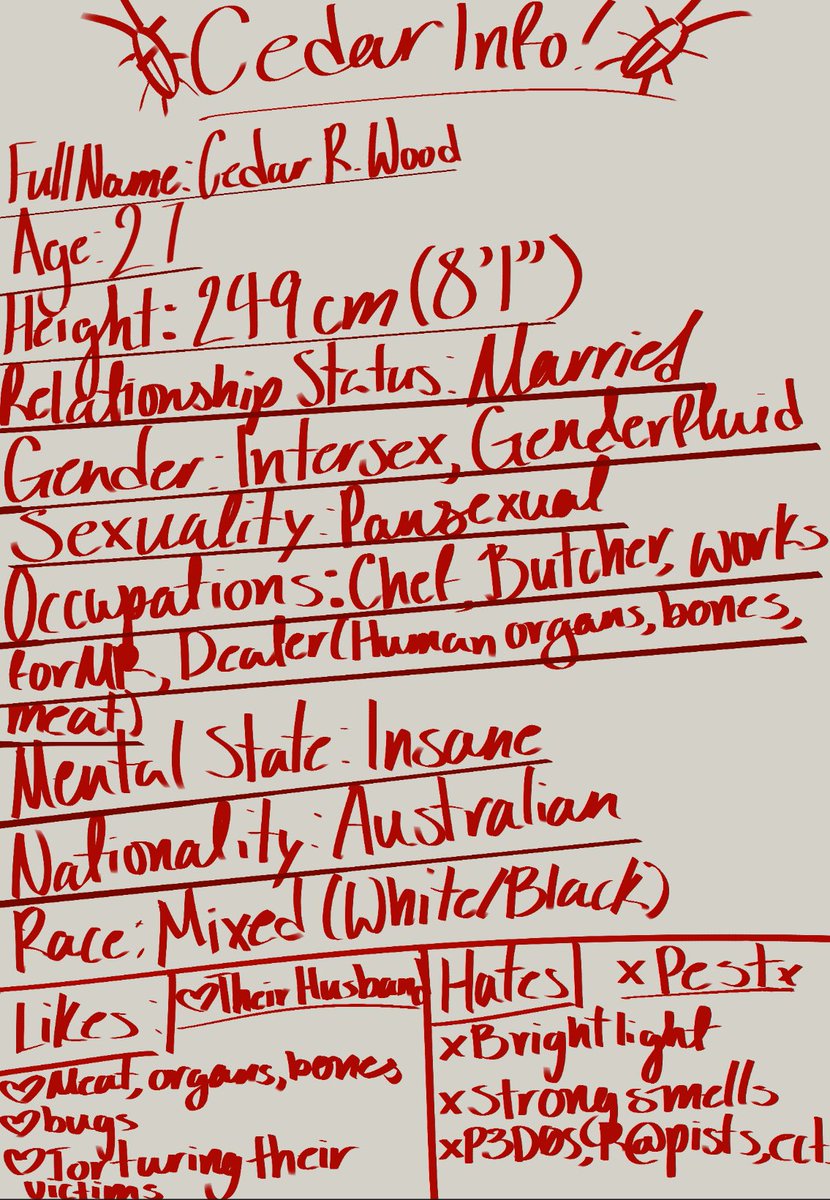 Cedar Info!
Full Name: Cedar R. Wood
Age: 27
Height: 249 cm (8'1")
Relationship Status: Married
Gender: Intersex, Genderfluid
Sexuality: Pansexual
Occupations: Chef, Butcher, works
for MR, Dealer (Human organs, bones,
meat)
Mental State: Insane
Nationality: Australian
Race: Mixed (White/Black)
Likes:
♡Their Husband
♡Meat, organs, bones
♡bugs
♡Torturing their
victims
Hates
x Pest x
xBright light
xstrong smells
xP3D0S, (R@pists, ect.